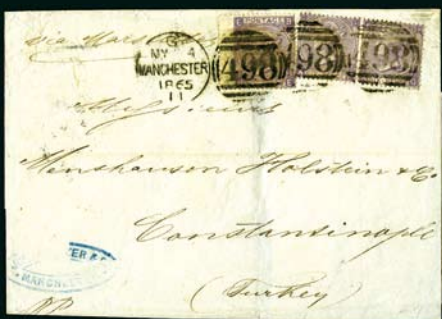 via Marseille
G
MY 4
MANCHESTER
1865
11
498 498 498
POSTAGE
Messieurs
Munshausen Holstein & Co.
Constantinople
(Turkey)
MANCHE
PP